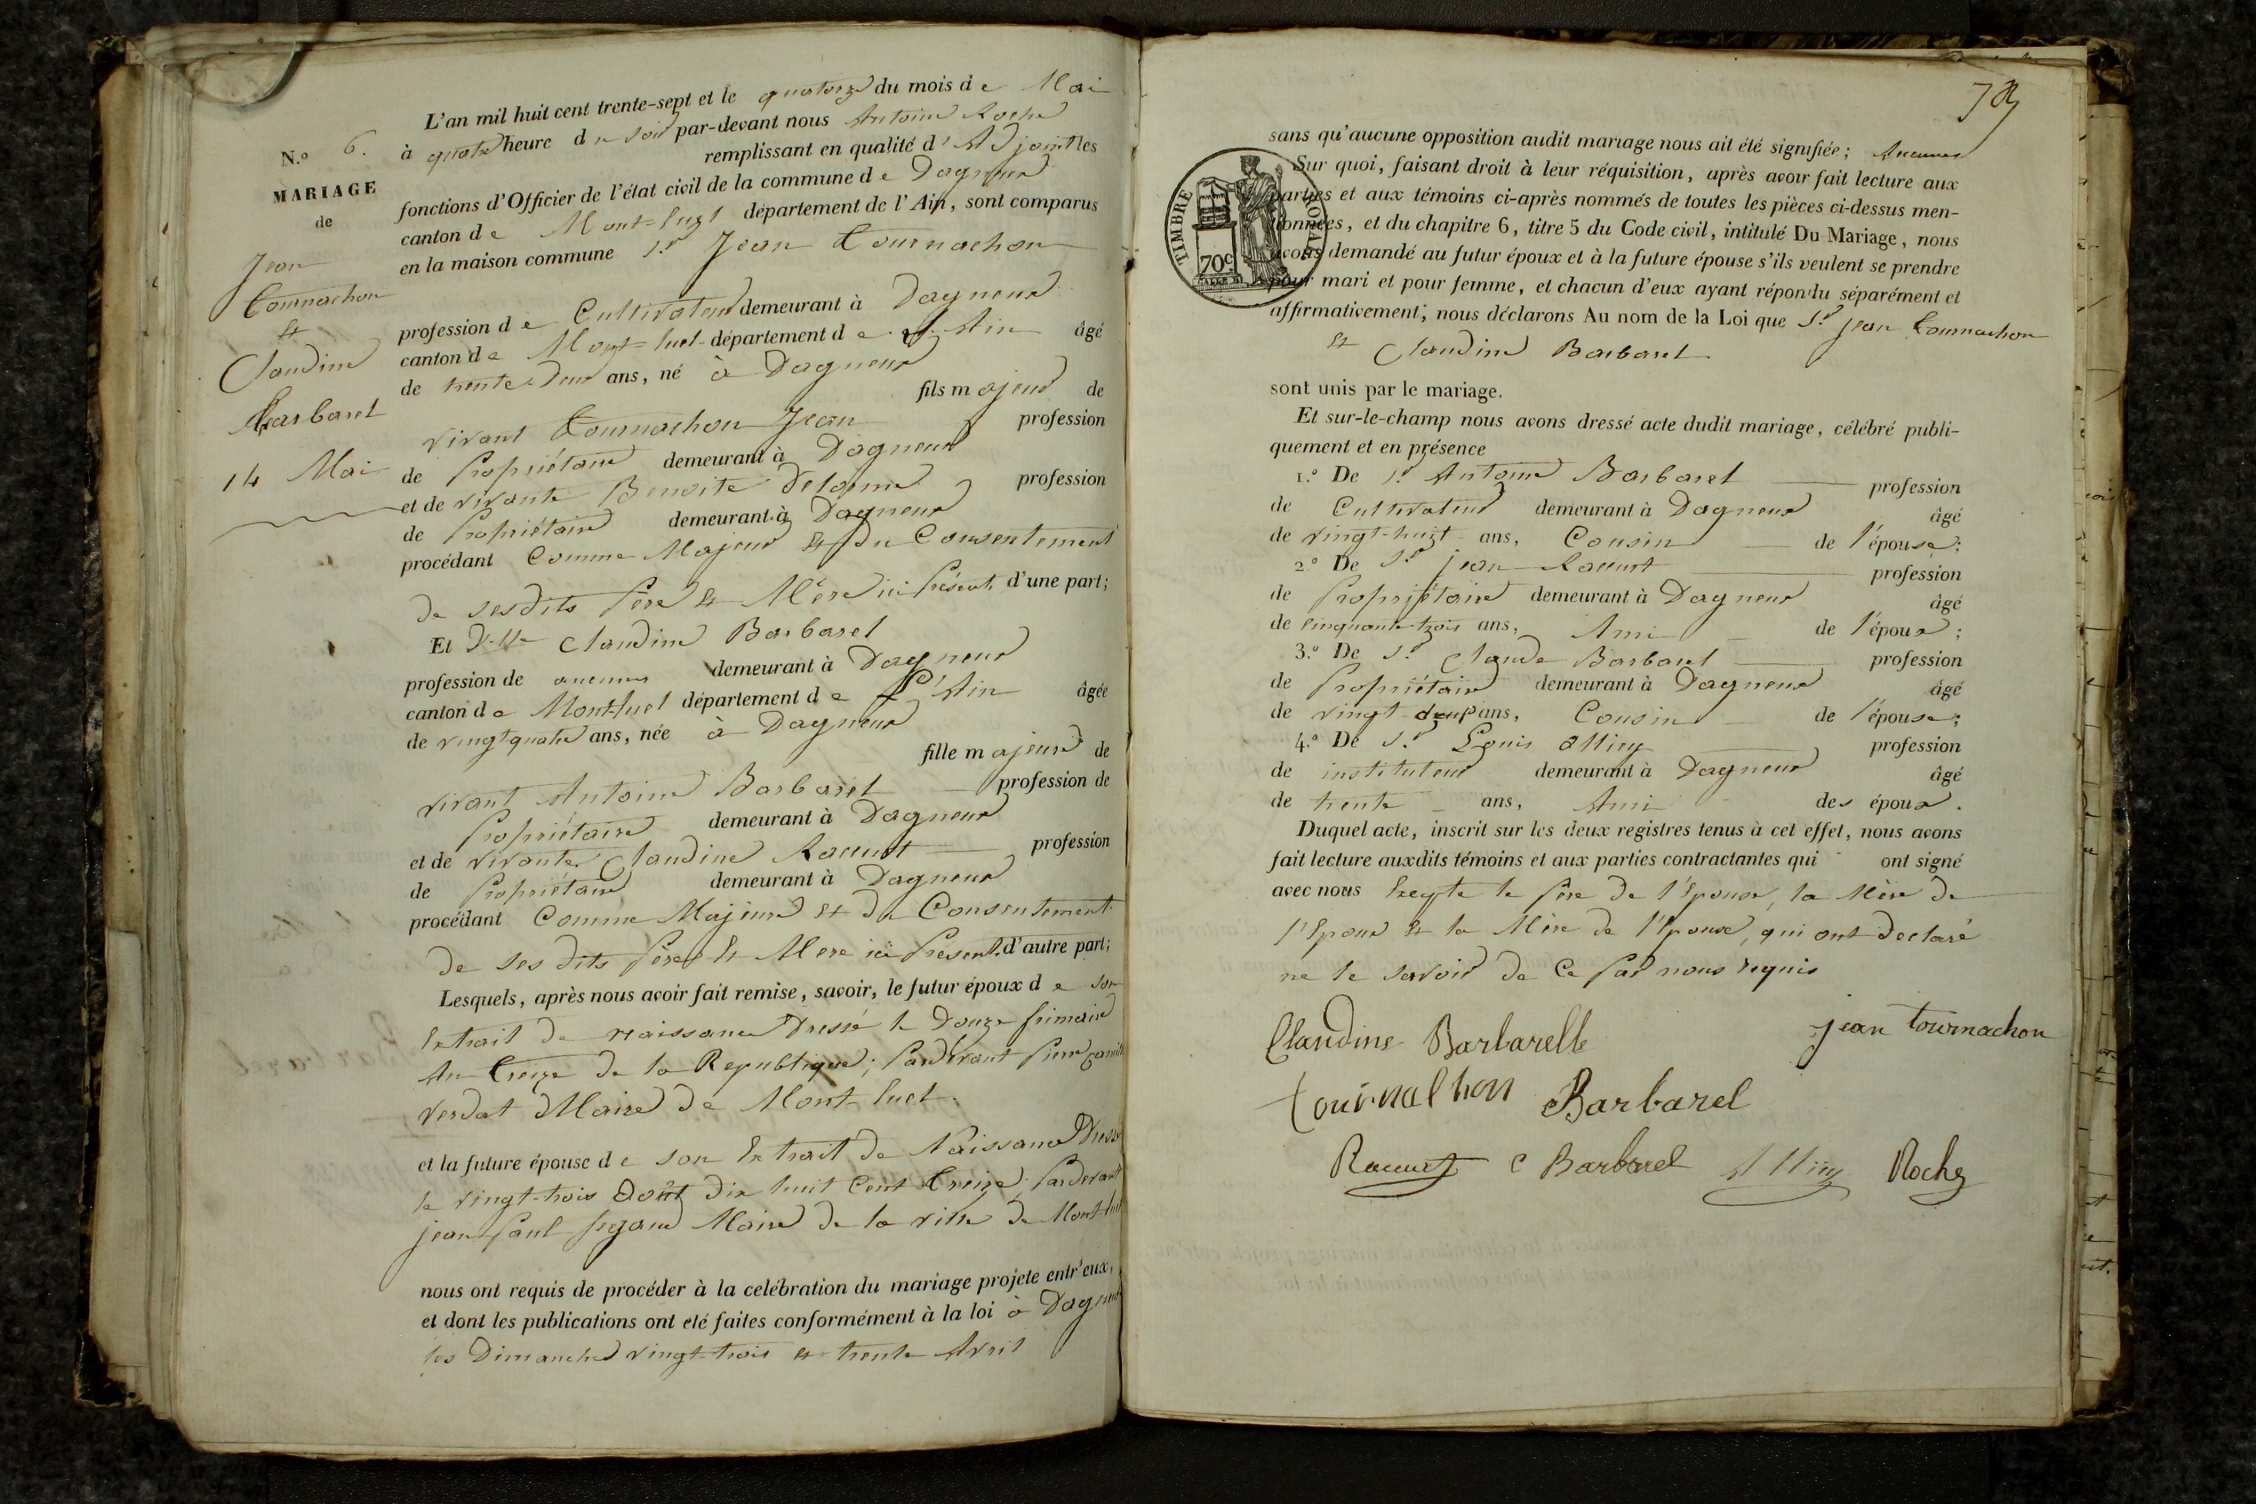 N.o 6.
MARIAGE
de
Jean
Tournachon
Et
Claudine
Barbaret
14 Mai
L'an mil huit cent trente-sept et le quatorze du mois de Mai
à quatre heure du soir par-devant nous Antoine Roche
remplissant en qualité d'Adjoint les
fonctions d'Officier de l'état civil de la commune de Dagneux
canton de Mont-luel département de l'Ain, sont comparus
en la maison commune Sr Jean Tournachon
profession de Cultivateur demeurant à Dagneux
canton de Mont-luel département de l'Ain âgé
de trente-deux ans, né à Dagneux
fils majeur de
vivant Tournachon Jean profession
de Propriétaire demeurant à Dagneux
et de vivante Benoite Delorme profession
de Propriétaire demeurant à Dagneux
procédant Comme Majeur Et du Consentement
de sesdits Père Et Mère ici Présents d'une part;
Et Dlle Claudine Barbaret
profession de aucunes demeurant à Dagneux
canton de Mont-luel département de l'Ain âgée
de vingt quatre ans, née à Dagneux
fille majeure de
vivant Antoine Barbaret profession de
Propriétaire demeurant à Dagneux
et de vivante Claudine Racurt profession
de Propriétaire demeurant à Dagneux
procédant Comme Majeure Et du Consentement
de ses dits Père Et Mere ici Présents d'autre part;
Lesquels, après nous avoir fait remise, savoir, le futur époux de son
Extrait de naissance Dressé le Douze frimaire
An Treize de la Republique; Pardevant Pierre Camille
Verdat Maire de Mont-luel.
et la future épouse de son Extrait de Naissance Dressé
le vingt-trois Août dix huit Cent Treize, Pardevant
jean Paul Maire de la ville de Mont-luel
nous ont requis de procéder à la celébration du mariage projete entr'eux,
et dont les publications ont eté faites conformément à la loi à Dagneux
les Dimanches vingt-trois Et trente Avril
sans qu'aucune opposition audit mariage nous ait été signifiée; Aucunes
Sur quoi, faisant droit à leur réquisition, après avoir fait lecture aux
parties et aux témoins ci-après nommés de toutes les pièces ci-dessus men-
tionnées, et du chapitre 6, titre 5 du Code civil, intitulé Du Mariage, nous
avons demandé au futur époux et à la future épouse s'ils veulent se prendre
pour mari et pour femme, et chacun d'eux ayant répondu séparément et
affirmativement, nous déclarons Au nom de la Loi que Sr Jean Tournachon
Et Claudine Barbaret
TIMBRE ROYAL
70c.
sont unis par le mariage.
Et sur-le-champ nous avons dressé acte dudit mariage, célébré publi-
quement et en présence
1.o De Sr Antoine Barbaret profession
de Cultivateur demeurant à Dagneux âgé
de vingt-huit ans, Cousin de l'épouse;
2.o De Sr Jean Racurt profession
de Propriétaire demeurant à Dagneux âgé
de Cinquante-trois ans, Ami de l'époux;
3.o De Sr Claude Barbaret profession
de Propriétaire demeurant à Dagneux âgé
de vingt-deux ans, Cousin de l'épouse;
4.o De Sr Louis profession
de instituteur demeurant à Dagneux âgé
de trente ans, Ami des époux.
Duquel acte, inscrit sur les deux registres tenus à cet effet, nous avons
fait lecture auxdits témoins et aux parties contractantes qui ont signé
avec nous Excepte le Père de l'Epouse, la Mère de
l'Epoux Et la Mère de l'Epouse, qui ont declaré
ne le savoir de Ce Par nous requis
Claudine Barbarelle jean tournachon
tournachon Barbarel
Racurt C Barbarel Roche